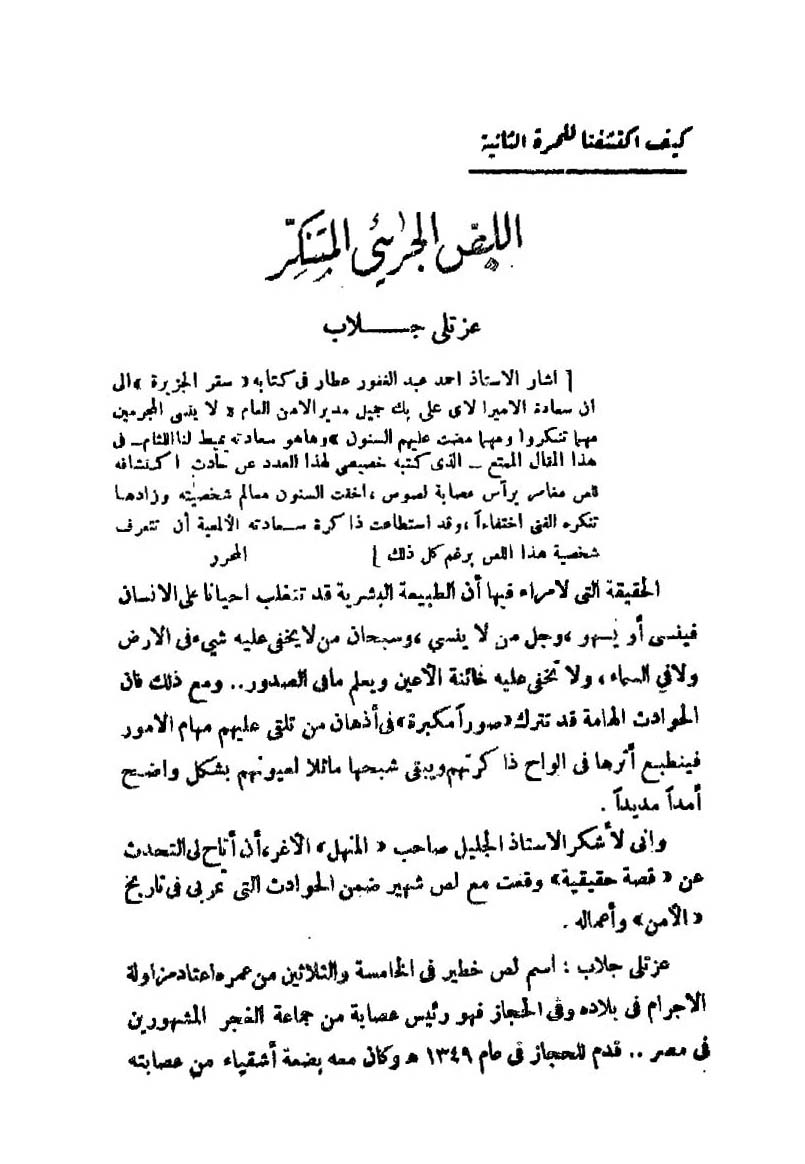 كيف اكتشفنا للمرة الثانية
اللص الجرائي المتنكر
عزتلى جــلاب
[ اشار الاستاذ احمد عبد الغفور عطار فى كتابه « سقر الجزيرة » الى
ان سعادة الاميرالاى على بك جميل مدير الامن العام « لا ينسى المجرمين
مهما تنكروا ومهما مضت عليهم السنون » وهاهو سعادته يميط لنا اللثام ـ فى
هذا المقال الممتع ـ الذى كتبه خصيصي لهذا العدد عن حادث اكتشافه
لص مغامر يرأس عصابة لصوص ، اخفت السنون معالم شخصيته وزادها
تنكره الفنى اختفاءاً ، وقد استطاعت ذاكرة سـعادته الألمعية أن تتعرف
شخصية هذا اللص برغم كل ذلك ] المحرر
الحقيقة التى لامراء فيها أن الطبيعة البشرية قد تتغلب احيانا على الانسان
فينسى أو يسهو ، وجل من لا ينسي ، وسبحان من لا يخفى عليه شيء فى الارض
ولا في السماء ، ولا تخفى عليه خائنة الأعين ويعلم مافى الصدور .. ومع ذلك فان
الحوادث الهامة قد تترك « صوراً مكبرة » فى أذهان من تلقى عليهم مهام الامور
فينطبـع أثرها فى الواح ذاكرتهم ويبقى شبحها ماثلا لعيونهم بشكل واضـح
أمداً مديداً .
وانى لأشكر الاستاذ الجليل صاحب « المنهل » الأغر ، أن أتاح لى التحدث
عن « قصة حقيقية » وقعت مع لص شهير ضمن الحوادث التى تمر بى فى تاريخ
« الأمن » وأعماله .
عزتلى جلاب : اسم لص خطير فى الخامسة والثلاثين من عمره اعتاد مزاولة
الاجرام فى بلاده وفى الحجاز فهو رئيس عصابة من جماعة الغجر المشهورين
فى مصر .. قدم للحجاز فى عام ١٣٤٩ هـ وكان معه بضعة أشقياء من عصابته